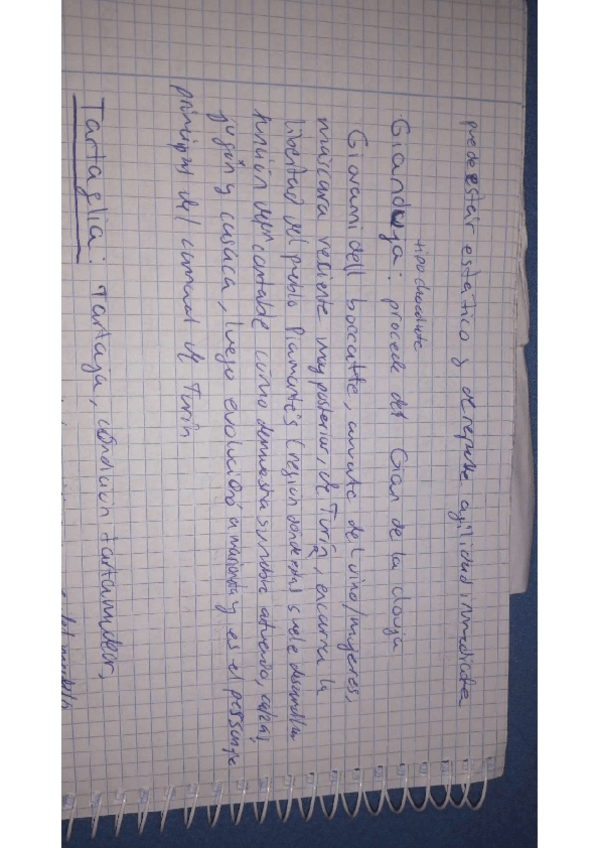 puede estar estático y de repente agilidad inmediata
tipo chocolate
Gianduja: procede del Gian de la douja
Giovanni dell boccatte, amante del vino/mujeres,
máscara reciente muy posterior, de Turín, encarna la
libertad del pueblo Piamontés (región donde suele
función como demuestra su noble atuendo,
jubón y casaca, luego evolucionó a marioneta y es el personaje
principal del carnaval de Turín
Tartaglia: Tartaja, condición tartamudear,